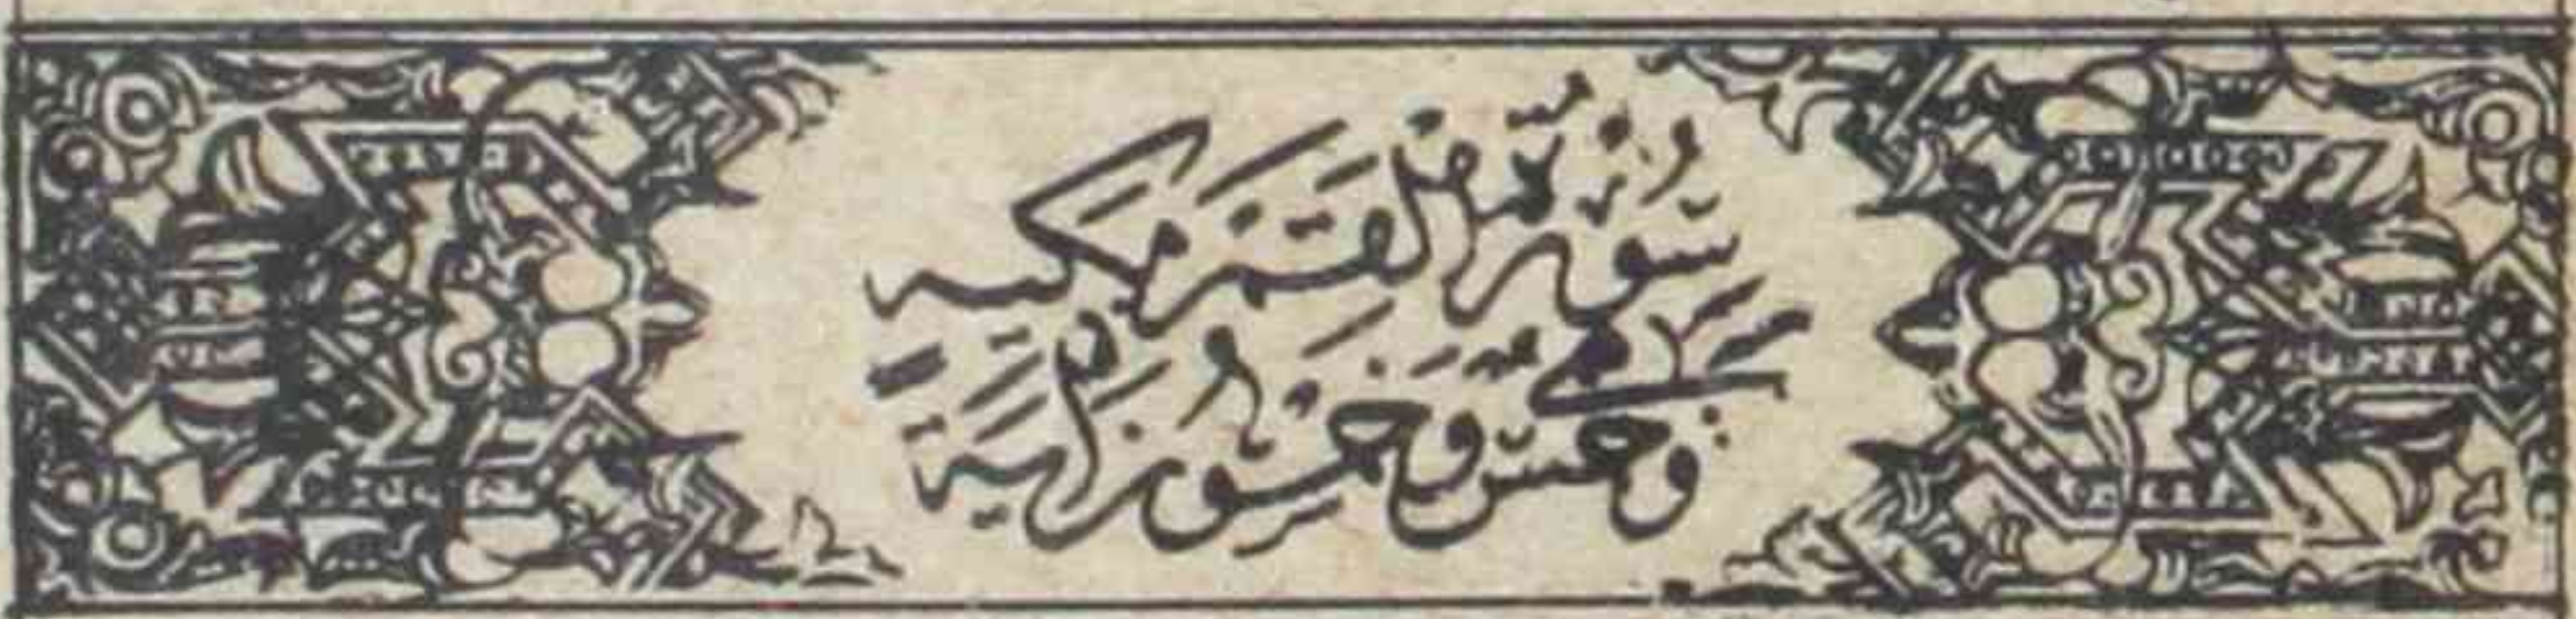 سُورَةُ الْقَمَرِ مَكِّيَّة
وَهِيَ خَمْسٌ وَخَمْسُونَ اٰيَةً